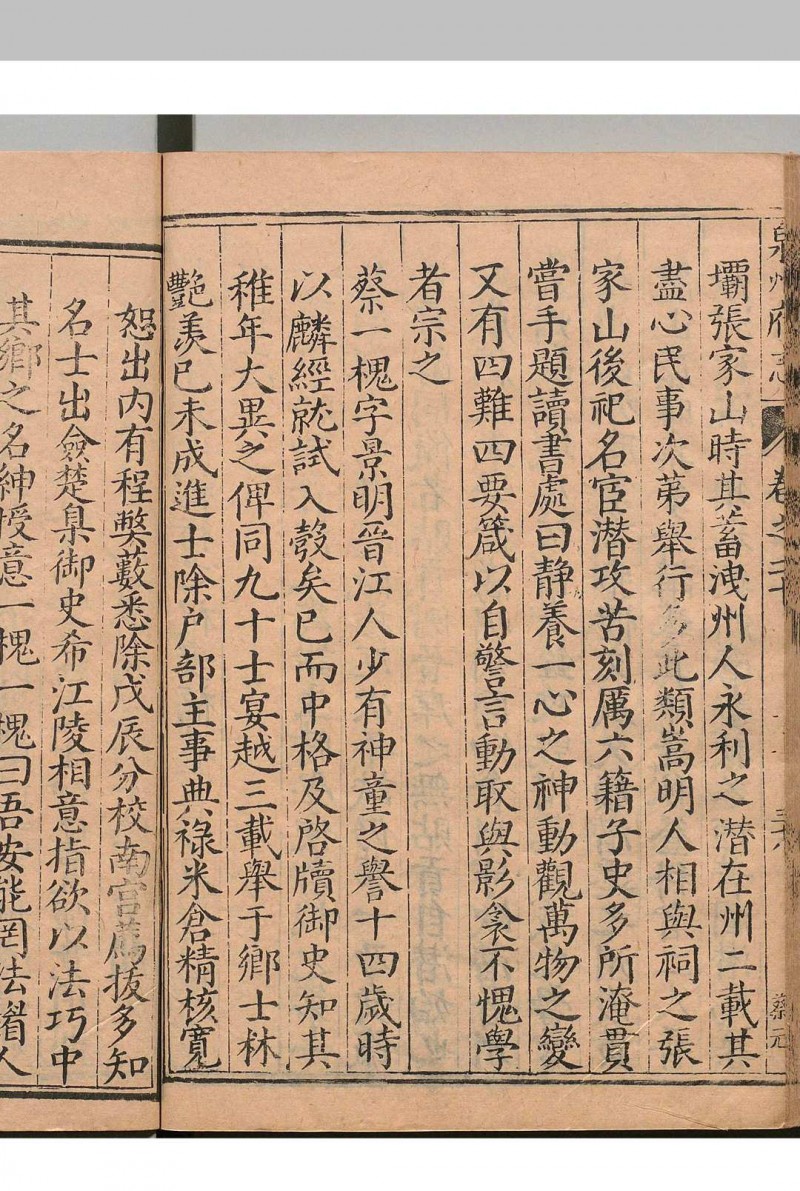 泉州府志 卷之二十 蔡元
壩張家山時其蓄洩州人永利之潜在州二載其
盡心民事次第舉行多此類嵩明人相與祠之張
家山後祀名宦潜攻苦刻厲六籍子史多所淹貫
嘗手題讀書處曰静養一心之神動觀萬物之變
又有四難四要箴以自警言動取與影衾不愧學
者宗之
蔡一槐字景明晉江人少有神童之譽十四歲時
以麟經就試入彀矣已而中格及啓牘御史知其
稚年大異之俾同九十士宴越三載舉于鄉士林
艷羡已未成進士除户部主事典禄米倉精核寬
恕出内有程弊藪悉除戊辰分校南宫薦拔多知
名士出僉楚臬御史希江陵相意指欲以法巧中
其鄉之名紳授意一槐一槐曰吾安能罔法媚人